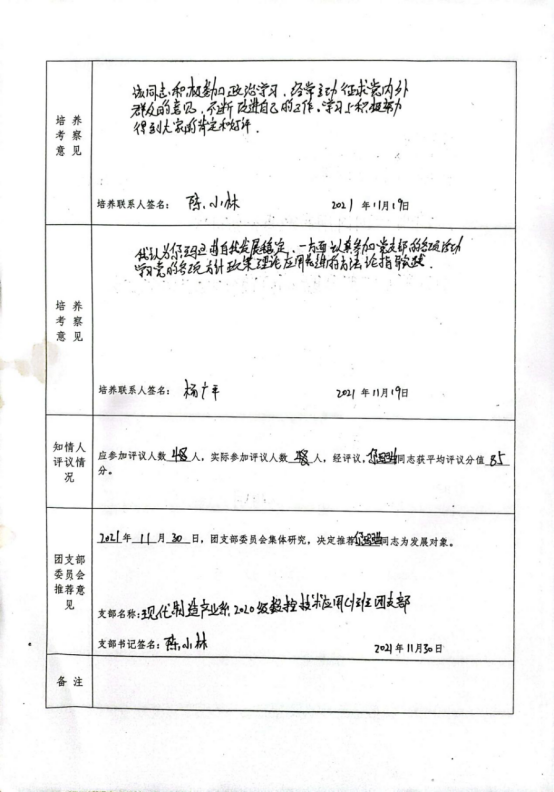 该同志积极参加政治学习，经常主动征求党内外
群众的意见，不断改进自己的工作。学习上积极努力
得到大家的肯定和好评．
培养
考察
意见
培养联系人签名：陈小林 2021年11月19日
我认为 自我发展稳定，一方面认真参加党支部的各项活动
学习党的各项方针政策理论应用 方法论指导实践．
培养
考察
意见
培养联系人签名：杨广平 2021年11月19日
知情人
评议情
况
应参加评议人数48人，实际参加评议人数48人，经评议， 同志获平均评议分值85
分。
团支部
委员会
推荐意
见
2021年11月30日，团支部委员会集体研究，决定推荐 同志为发展对象。
支部名称：现代制造产业系2020级数控技术应用(1)班团支部
支部书记签名：陈小林 2021年11月30日
备注